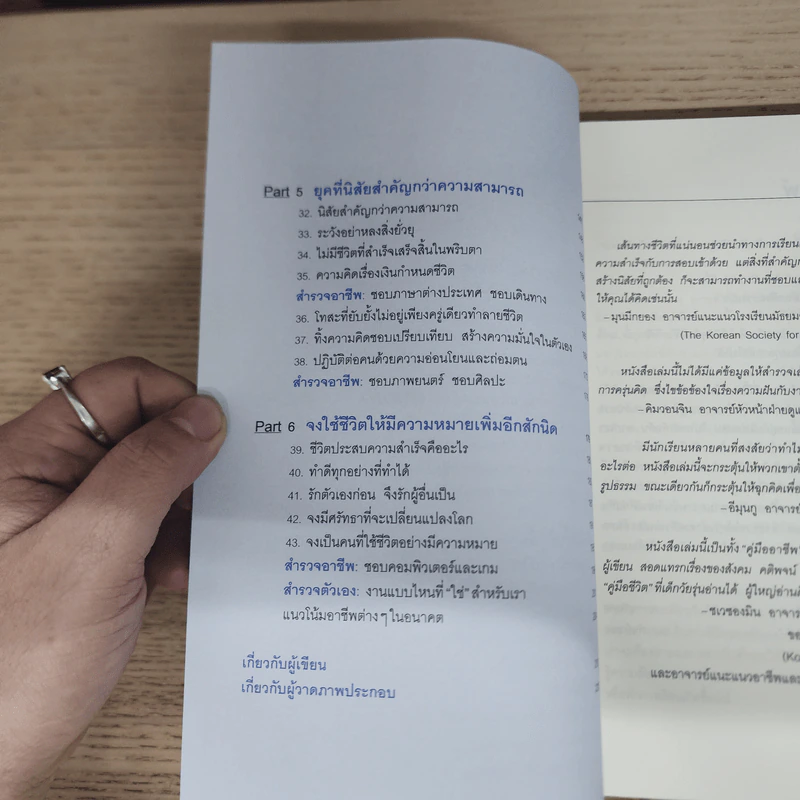 Part 5 ยุคที่นิสัยสำคัญกว่าความสามารถ
32. นิสัยสำคัญกว่าความสามารถ
33. ระวังอย่าหลงสิ่งยั่วยุ
34. ไม่มีชีวิตที่สำเร็จเสร็จสิ้นในพริบตา
35. ความคิดเรื่องเงินกำหนดชีวิต
สำรวจอาชีพ: ชอบภาษาต่างประเทศ ชอบเดินทาง
36. โทสะที่ยับยั้งไม่อยู่เพียงครู่เดียวทำลายชีวิต
37. ทิ้งความคิดชอบเปรียบเทียบ สร้างความมั่นใจในตัวเอง
38. ปฏิบัติต่อคนด้วยความอ่อนโยนและถ่อมตน
สำรวจอาชีพ: ชอบภาพยนตร์ ชอบศิลปะ
Part 6 จงใช้ชีวิตให้มีความหมายเพิ่มอีกสักนิด
39. ชีวิตประสบความสำเร็จคืออะไร
40. ทำดีทุกอย่างที่ทำได้
41. รักตัวเองก่อน จึงรักผู้อื่นเป็น
42. จงมีศรัทธาที่จะเปลี่ยนแปลงโลก
43. จงเป็นคนที่ใช้ชีวิตอย่างมีความหมาย
สำรวจอาชีพ: ชอบคอมพิวเตอร์และเกม
สำรวจตัวเอง: งานแบบไหนที่ "ใช่" สำหรับเรา
แนวโน้มอาชีพต่างๆ ในอนาคต
เกี่ยวกับผู้เขียน
เกี่ยวกับผู้วาดภาพประกอบ
เส้นทางชีวิตที่แน่นอนช่วยนำทางการเรียน
ความสำเร็จกับการสอบเข้าด้วย แต่สิ่งที่สำคัญ
สร้างนิสัยที่ถูกต้อง ก็จะสามารถทำงานที่ชอบและ
ให้คุณได้คิดเช่นนั้น
– มุนมีกยอง อาจารย์แนะแนวโรงเรียนมัธยม
(The Korean Society for
หนังสือเล่มนี้ไม่ได้มีแค่ข้อมูลให้สำรวจ
การครุ่นคิด ซึ่งไขข้อข้องใจเรื่องความฝันกับ
– คิมวอนจิน อาจารย์หัวหน้าฝ่ายดูแ
มีนักเรียนหลายคนที่สงสัยว่าทำไม
อะไรต่อ หนังสือเล่มนี้จะกระตุ้นให้พวกเขา
รูปธรรม ขณะเดียวกันก็กระตุ้นให้ฉุกคิดเพื่อ
– อีมุนกู อาจารย์
หนังสือเล่มนี้เป็นทั้ง "คู่มืออาชีพ
ผู้เขียน สอดแทรกเรื่องของสังคม คติพจน์
"คู่มือชีวิต" ที่เด็กวัยรุ่นอ่านได้ ผู้ใหญ่อ่าน
– ชเวซองมิน อาจาร
ขอ
(Ko
และอาจารย์แนะแนวอาชีพและ